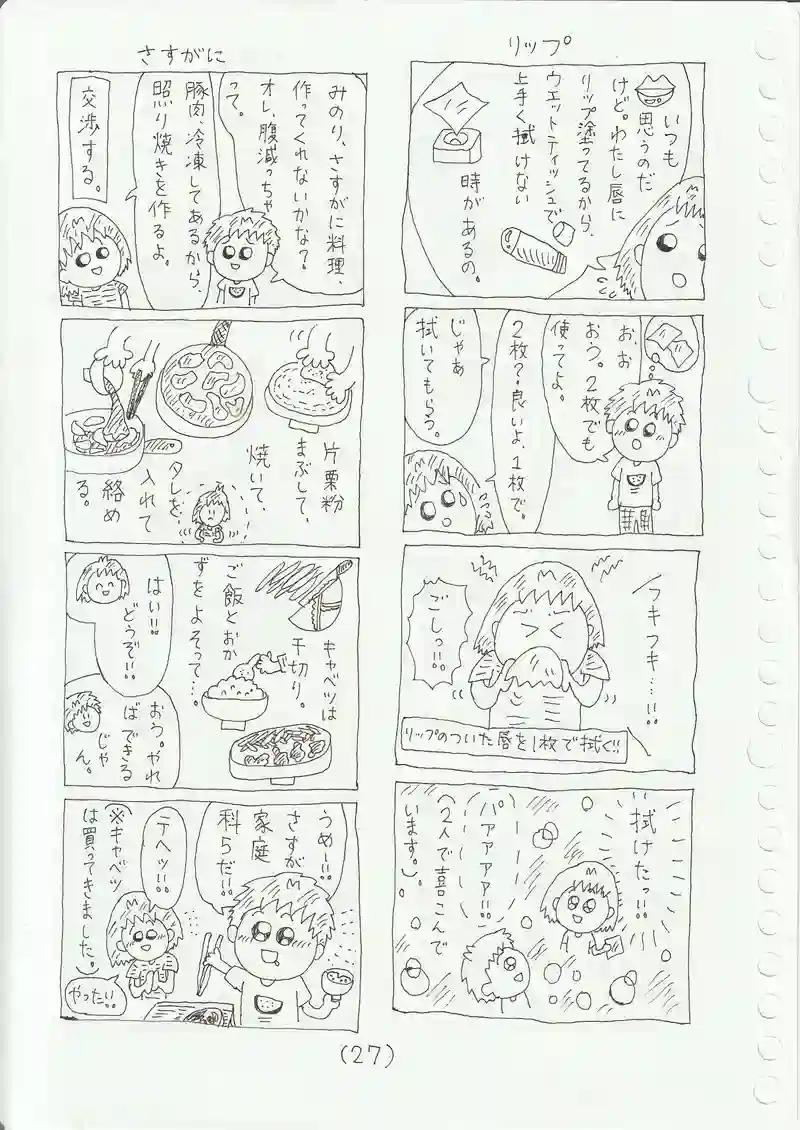 リップ
いつも
思うのだ
けど。わたし唇に
リップ塗ってるから、
ウエットティッシュで
上手く拭けない
時があるの。
お、お
おう。2枚でも
使ってよ。
2枚?良いよ、1枚で。
じゃあ
拭いてもらう。
フキフキ…!!
ごしっ!!
リップのついた唇を1枚で拭ぐ!!
拭けたっ!!
パアァァァ!!
(2人で喜こんで
います。)
さすがに
みのり、さすがに料理、
作ってくれないかな?
オレ、腹減っちゃ
って。
豚肉、冷凍してあるから、
照り焼きを作るよ。
交渉する。
片栗粉
まぶして、
焼いて、
タレを、
入れて
絡め
る。
キャベツは
千切り。
ご飯とおか
ずをよそって…。
はい!!
どうぞ!!
おう。やれ
ばできる
じゃ
ん。
うめー!!
さすが
家庭
科5だ!!
テヘッ!!
(※キャベツ
は買ってきました。)
やった!!
(27)